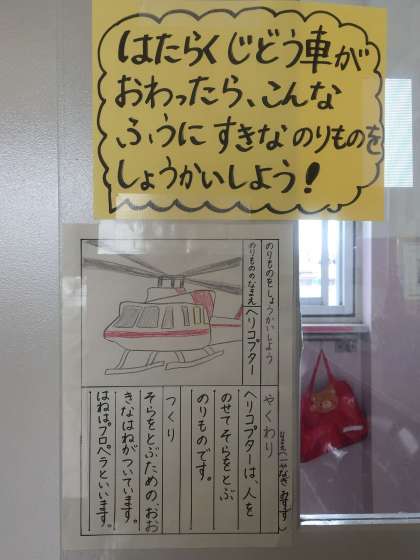 はたらくじどう車が
おわったら、こんな
ふうにすきなのりものを
しょうかいしよう！
のりものをしょうかいしよう
のりもののなまえ ヘリコプター
やくわり
ヘリコプターは、人を
のせてそらをとぶ
のりものです。
つくり
そらをとぶための、おお
きなはねがついています。
はねはプロペラといいます。